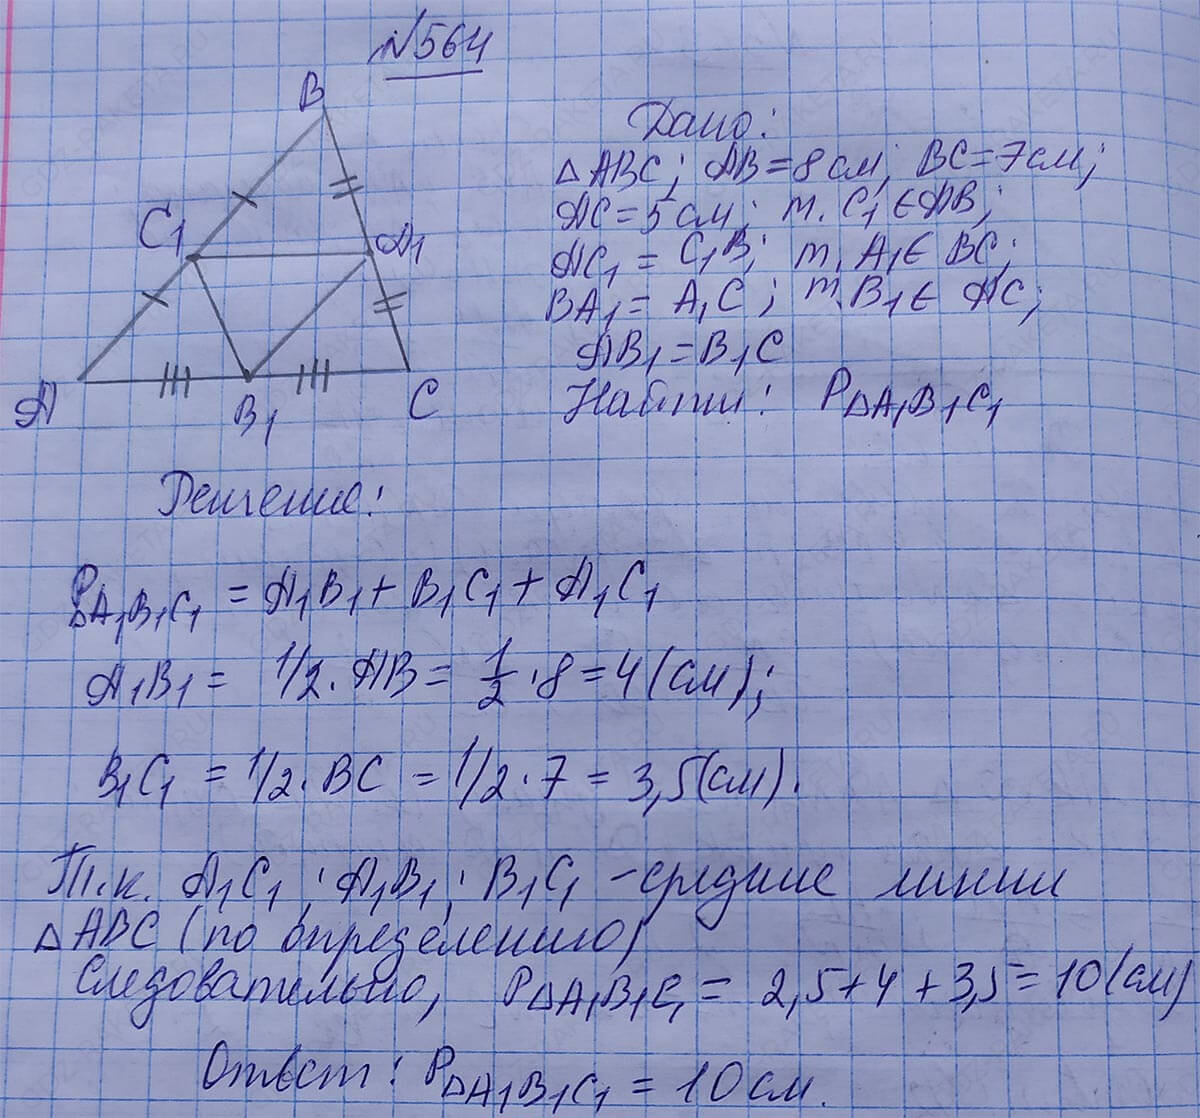 №564
B
C₁
A₁
A
B₁
C
Дано:
△ABC; AB=8см; BC=7см;
AC=5см; т. C₁∈AB;
AC₁=C₁B; т. A₁∈BC;
BA₁=A₁C; т. B₁∈AC;
AB₁=B₁C
Найти: P△A₁B₁C₁
Решение:
P△A₁B₁C₁ = A₁B₁+B₁C₁+A₁C₁
A₁B₁ = 1/2·AB = 1/2·8=4(см);
B₁C₁ = 1/2·BC = 1/2·7 = 3,5(см).
Т.к. A₁C₁; A₁B₁; B₁C₁ - средние линии
△ABC (по определению)
Следовательно, P△A₁B₁C₁ = 2,5+4+3,5=10(см)
Ответ: P△A₁B₁C₁ = 10см.